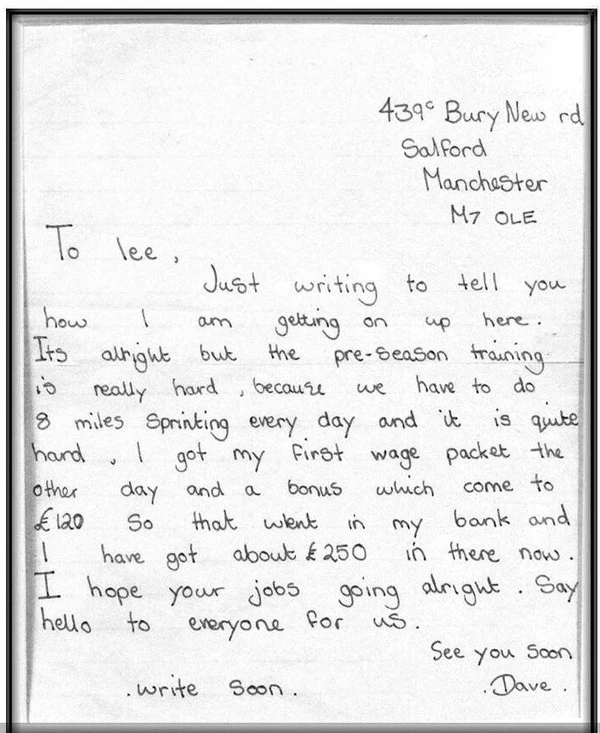 439c Bury New rd
Salford
Manchester
M7 OLE
To lee,
Just writing to tell you
how I am getting on up here.
Its alright but the pre-season training
is really hard, because we have to do
8 miles Sprinting every day and it is quite
hard. I got my first wage packet the
other day and a bonus which come to
£120 So that went in my bank and
I have got about £250 in there now.
I hope your jobs going alright. Say
hello to everyone for us.
See you Soon
.write Soon.
.Dave.